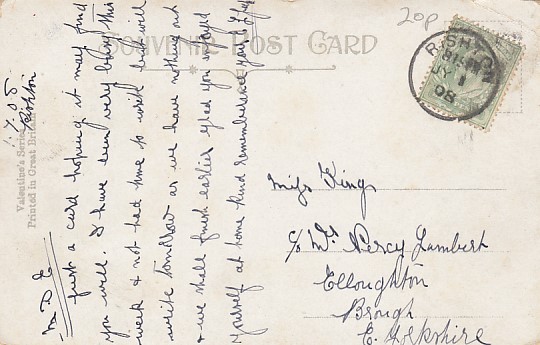 SOUVENIR POST CARD
20p
RISHTON
8 15 PM
JY 1
08
Valentine's Series
Printed in Great Britain
1.7.08
Rishton
My D E
Just a card hoping it may find
you well. I have been very busy this
week & not had time to write but will
write tomorrow as we have nothing on
& we shall finish earlier glad you enjoyed
yourself at home kind remembrances yours
Miss King
c/o Mr Percy Lambert
Elloughton
Brough
E. Yorkshire